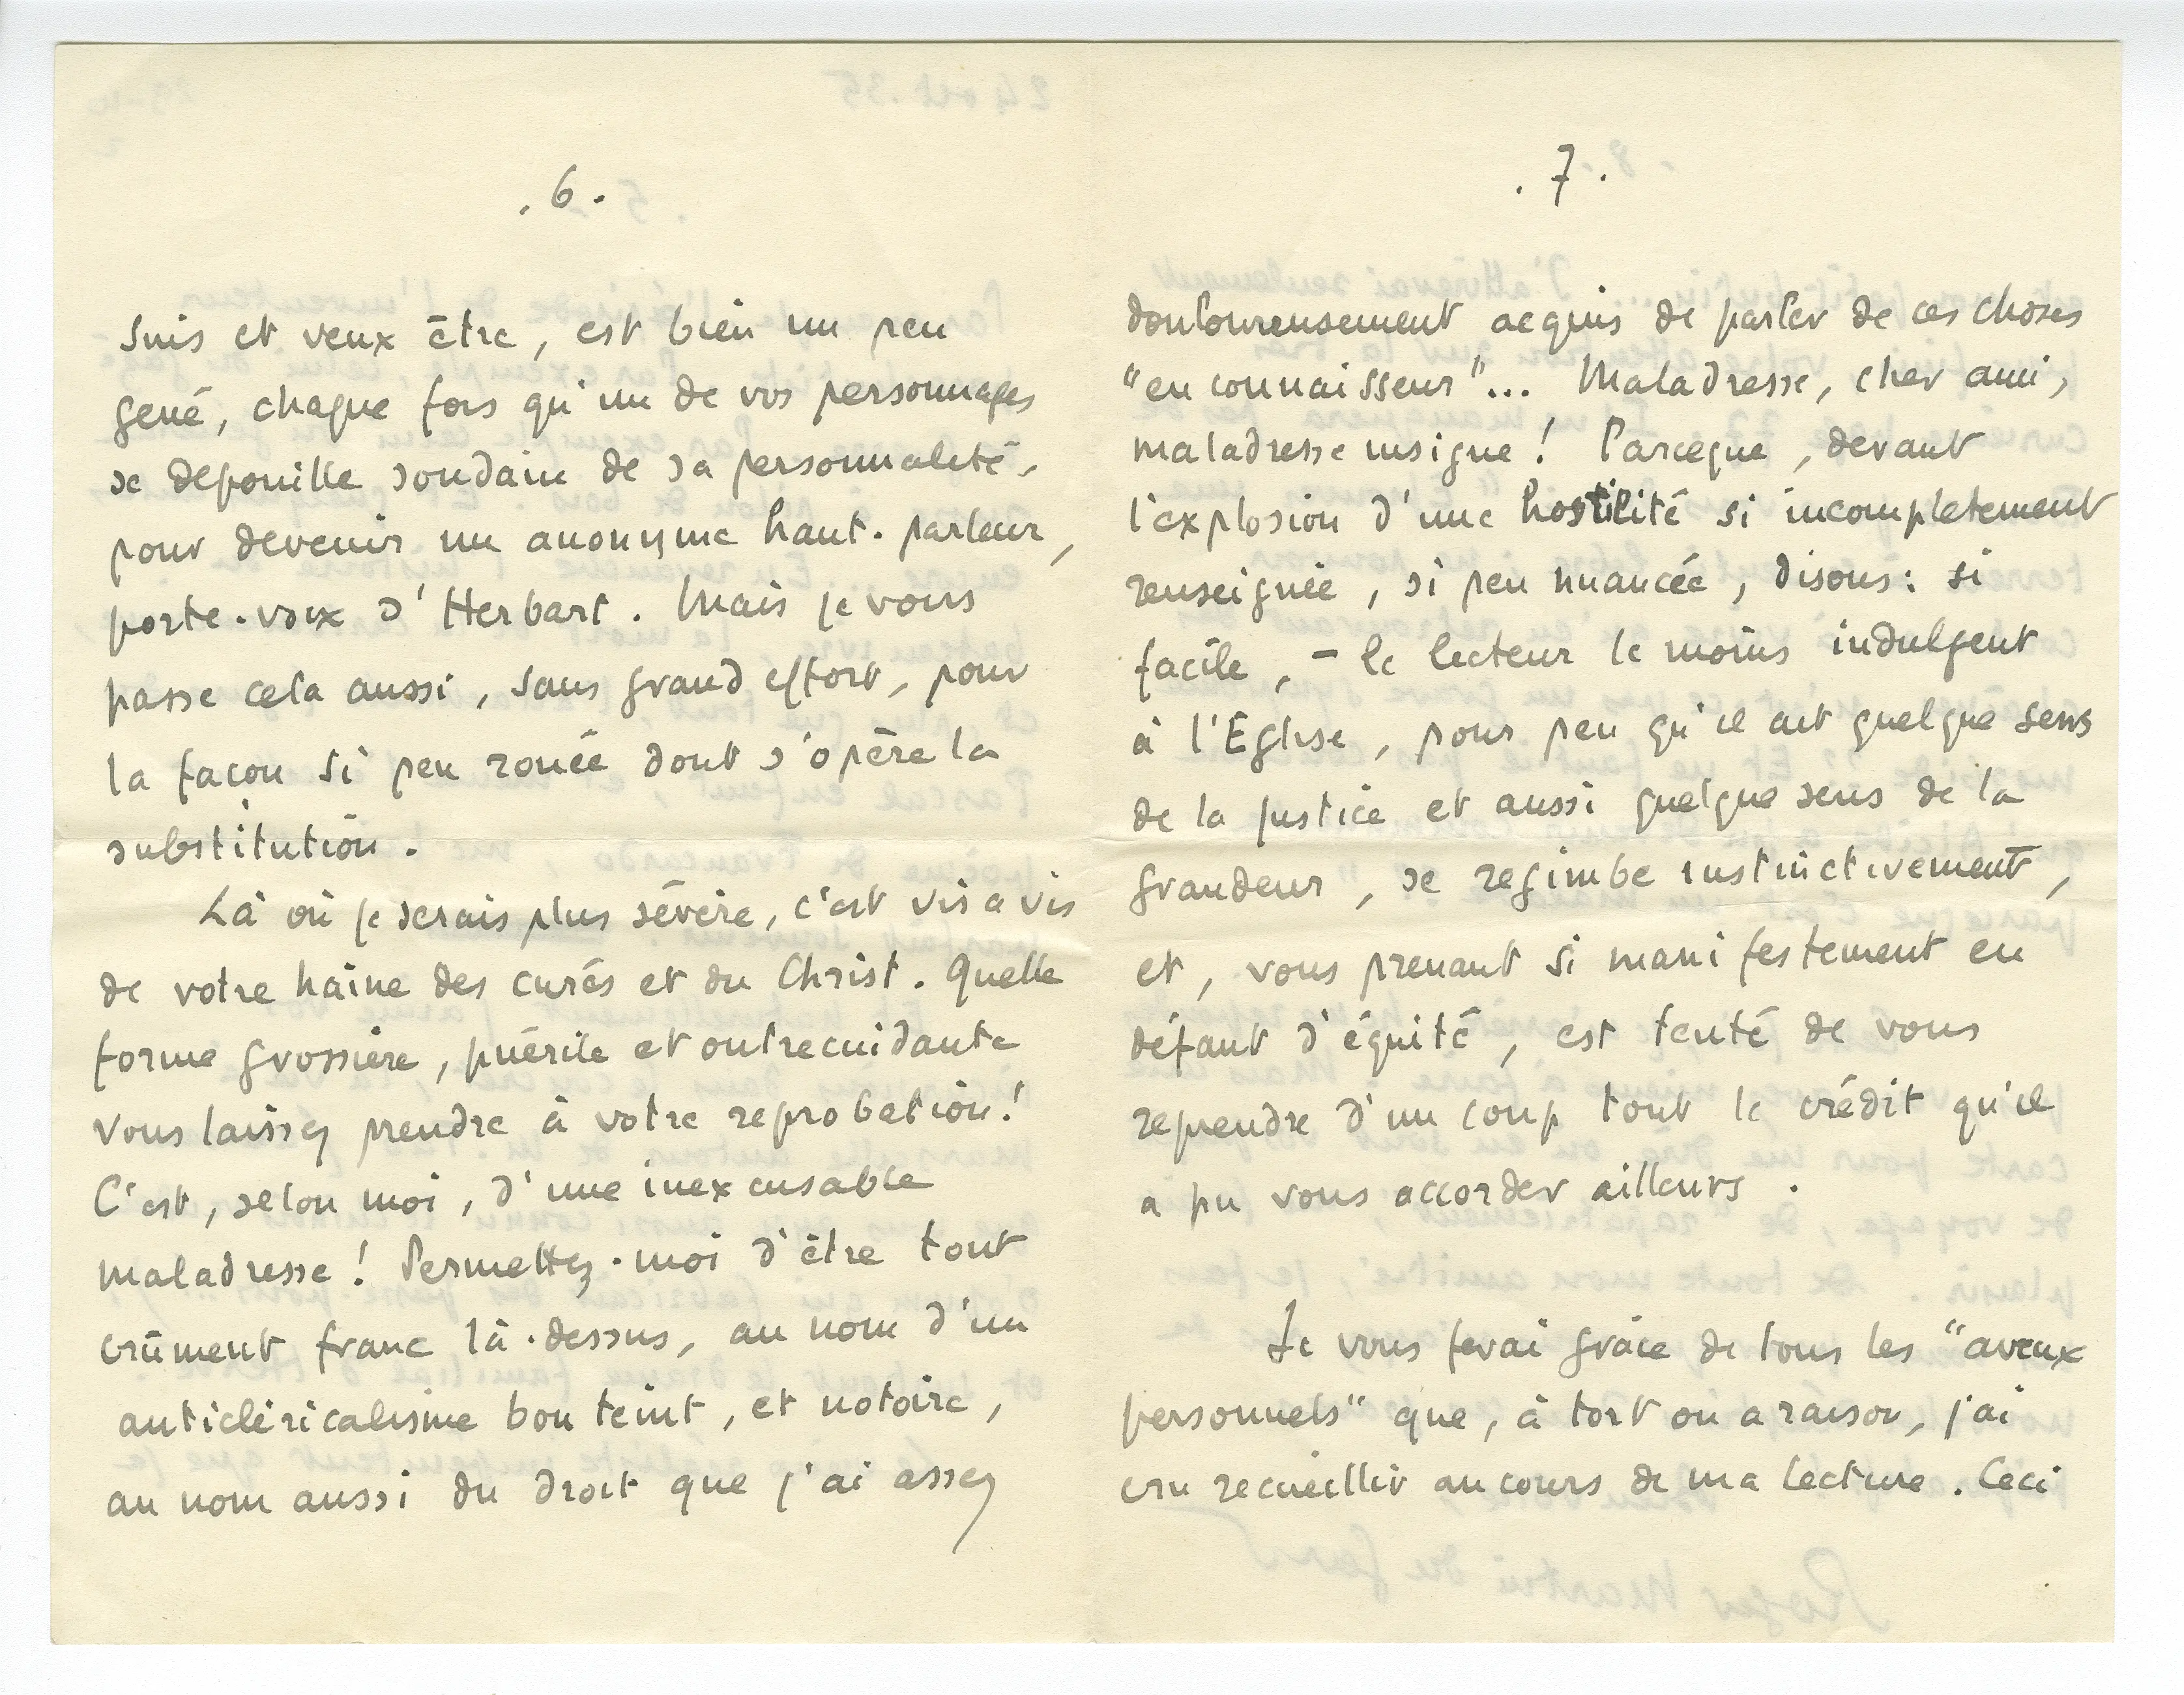 . 6 .
suis et veux être, est bien un peu
gené, chaque fois qu'un de vos personnages
se dépouille soudain de sa personnalité,
pour devenir un anonyme haut-parleur,
porte-voix d'Herbart. Mais je vous
passe cela aussi, sans grand effort, pour
la façon si peu rouée dont s'opère la
substitution.
Là où je serais plus sévère, c'est vis a vis
de votre haine des curés et du Christ. Quelle
forme grossière, puérile et outrecuidante
vous laissez prendre à votre reprobation!
C'est, selon moi, d'une inexcusable
maladresse! Permettez-moi d'être tout
crûment franc là-dessus, au nom d'un
anticléricalisme bon teint, et notoire,
au nom aussi du droit que j'ai assez
. 7 .
douloureusement acquis de parler de ces choses
"en connaisseur"... Maladresse, cher ami,
maladresse insigne! Parceque, devant
l'explosion d'une hostilité si incompletement
renseignée, si peu nuancée, disons: si
facile, – le lecteur le moins indulgent
à l'Eglise, pour peu qu'il ait quelque sens
de la justice et aussi quelque sens de la
grandeur, se regimbe instinctivement,
et, vous prenant si manifestement en
défaut d'équité, est tenté de vous
reprendre d'un coup tout le crédit qu'il
a pu vous accorder ailleurs.
Je vous ferai grâce de tous les "aveux
personnels" que, à tort ou a raison, j'ai
cru recueillir au cours de ma lecture. Ceci